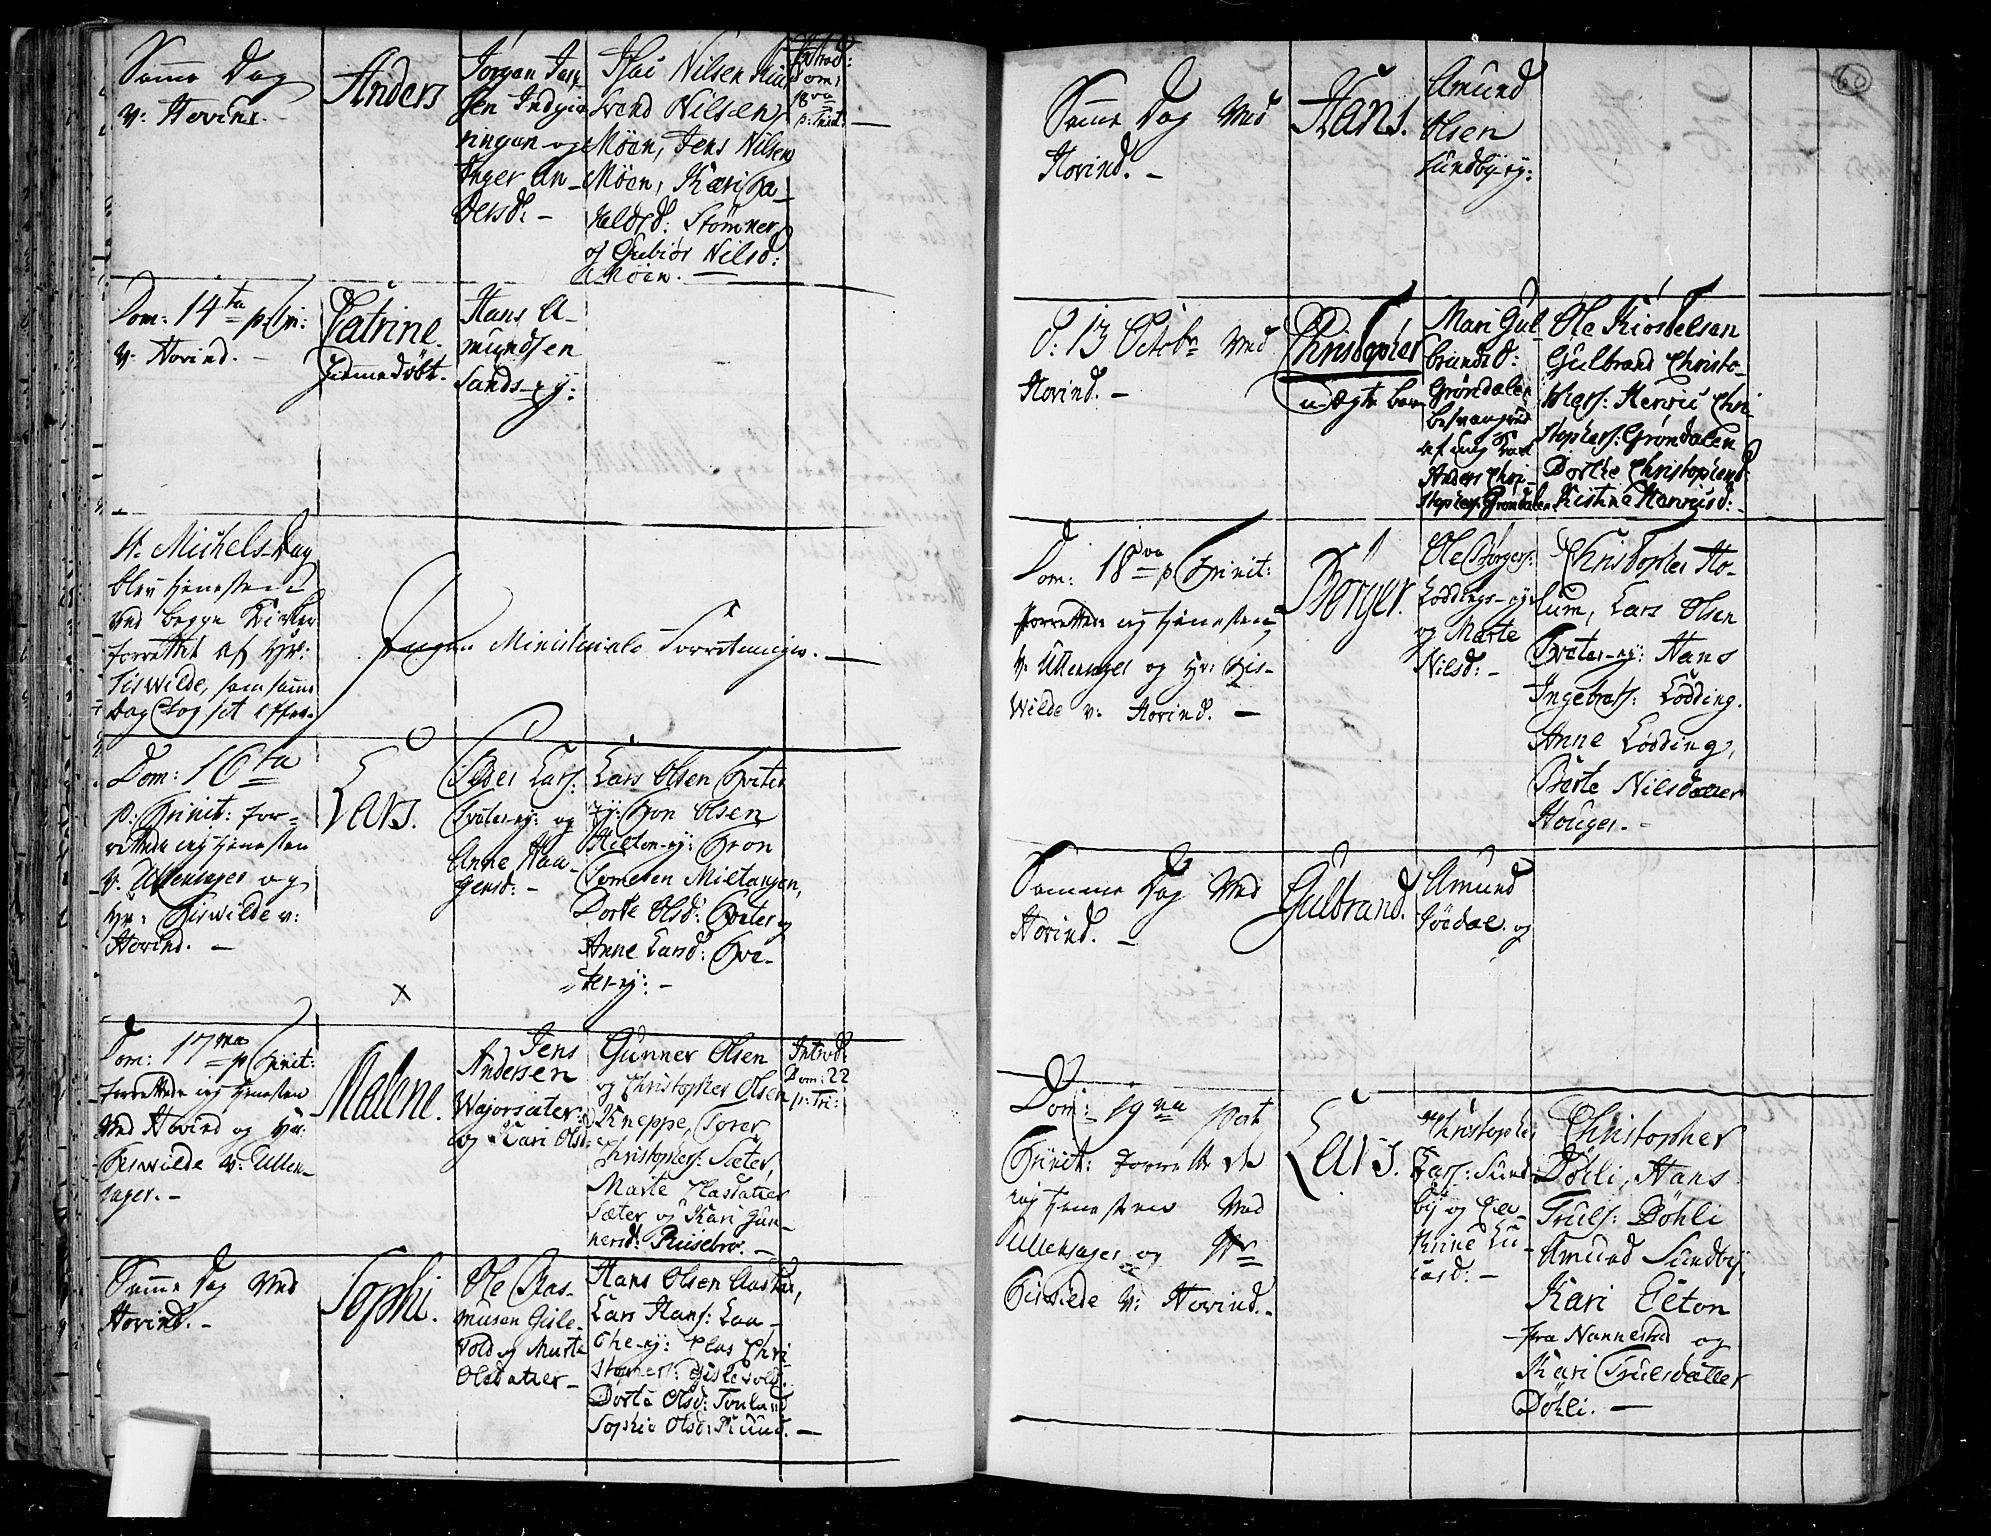 Samme Dag
v: Hovind.
Anders
Jørgen
sen
ningen og
Inger An-
dersd: -
Nilsen
Svend Nilsen
Moen, Jens Nilsen
Moen, Kari Ha-
raldsd: Stømner
og Gubiør Nilsd:
Moen. -
Introd:
Dom:
18va
p: Trinit:
Dom: 14ta p: Tri:
v: Hovind. -
Catrine.
hiemedøbt.
Hans A-
mundsen
Sands-ej:
St. Michels Dag
blev tienesten
ved begge Kirker
forrettet af Hr:
Siswilde, som samme
Dag tog sit afsker-
Ingen Ministeriale Forretninger. -
Dom: 16ta
p: Trinit: for-
rettede ieg tienesten
v. Ullensager og
Hr: Tiswilde v:
Hovind. -
Lars.
Peder Lars:
Tveter-ej: og
Anne Haa-
gensd: -
Lars Olsen Tveter
ej: Tron Olsen
Hilton-ej: Tron
Tomesen Miltangen,
Dorte Olsd: Tveter og
Anne Larsd: Tve-
ter-ej: -
x
Dom: 17ma
p Trinit:
forrettede ieg tienesten
ved Hovind og Hr:
Tiswilde v: Ullen-
sager. -
Malene.
Jens
Andersen
Wajorsæter:
og Kari Olsd:
Gunner Olsen
og Christopher Olsen
Kneppe, Torer
Christophers: Sæter,
Marte Hasdatter
Sæter og Kari Gun-
nersd: Risebro. -
Introd:
Dom: 22
p: Tri:
Samme Dag ved
Hovind. -
Sophi.
Ole Ras-
musen Gisle-
vold og Marte
Olsdatter -
Hans Olsen
Lars Hans: Lau-
the-ej: Clas Chri-
stophers: Gislevold.
Dorte Olsd:
Sophie Olsd: Ruud. -
60
Samme Dag ved
Hovind. -
Hans.
Amund
Olsen
Sundby-ej:
d: 13 Octobr ved
Hovind. -
Christopher
u-ægte barn
Mari Gul-
brandsd:
Grøndalen
besvangret
af ung Karl
Anders Chri-
stophers: Grøndalen
Ole Kiostelsen
Gulbrand Christo-
phers: Henric Chri-
stophers: Grøndalen
Dorthe Christophersd:
Kistine Henricsd: -
Dom: 18va p Trinit:
forrettede ieg tienesten
v: Ullensager og Hr: Tis-
wilde v: Hovind. -
Børger.
Ole Børgers:
Lødings-ej:
og Marte
Nilsd: -
Christopher Ho-
lum, Lars Olsen
Tveter-ej: Hans
Ingebrets: Lødding.
Anne Lødding,
Berte Nilsdatter
Houger. -
Samme Dag ved
Hovind. -
Gulbrand.
Amund
Jødal og
Dom: 19na post
Trinit: forrettede
ieg tienesten ved
Ullensager og Hr
Tiswilde v: Hovind. -
Lars.
Christopher
Lars: Sund-
by og Ca-
thrine Lu-
casd: -
Christopher
Døhli, Hans
Truls: Døhli
Amund Sundby,
Kari Eeton
fra Nannestad og
Kari Trulsdatter
Døhli. -